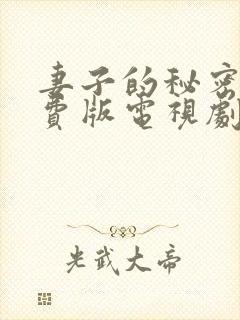 妻子的秘密
費版電視劇
光武大帝